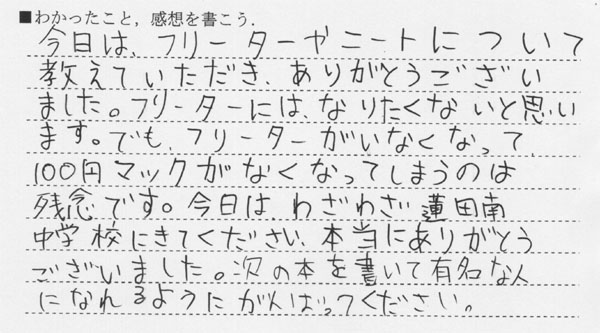 ■わかったこと，感想を書こう．
今日は、フリーターやニートについて
教えていただき、ありがとうござい
ました。フリーターには、なりたくないと思い
ます。でも、フリーターがいなくなって、
100円マックがなくなってしまうのは
残念です。今日は、わざわざ蓮田南
中学校にきてくださいい、本当にありがとう
ございました。次の本を書いて有名な人
になれるようにがんばってください。